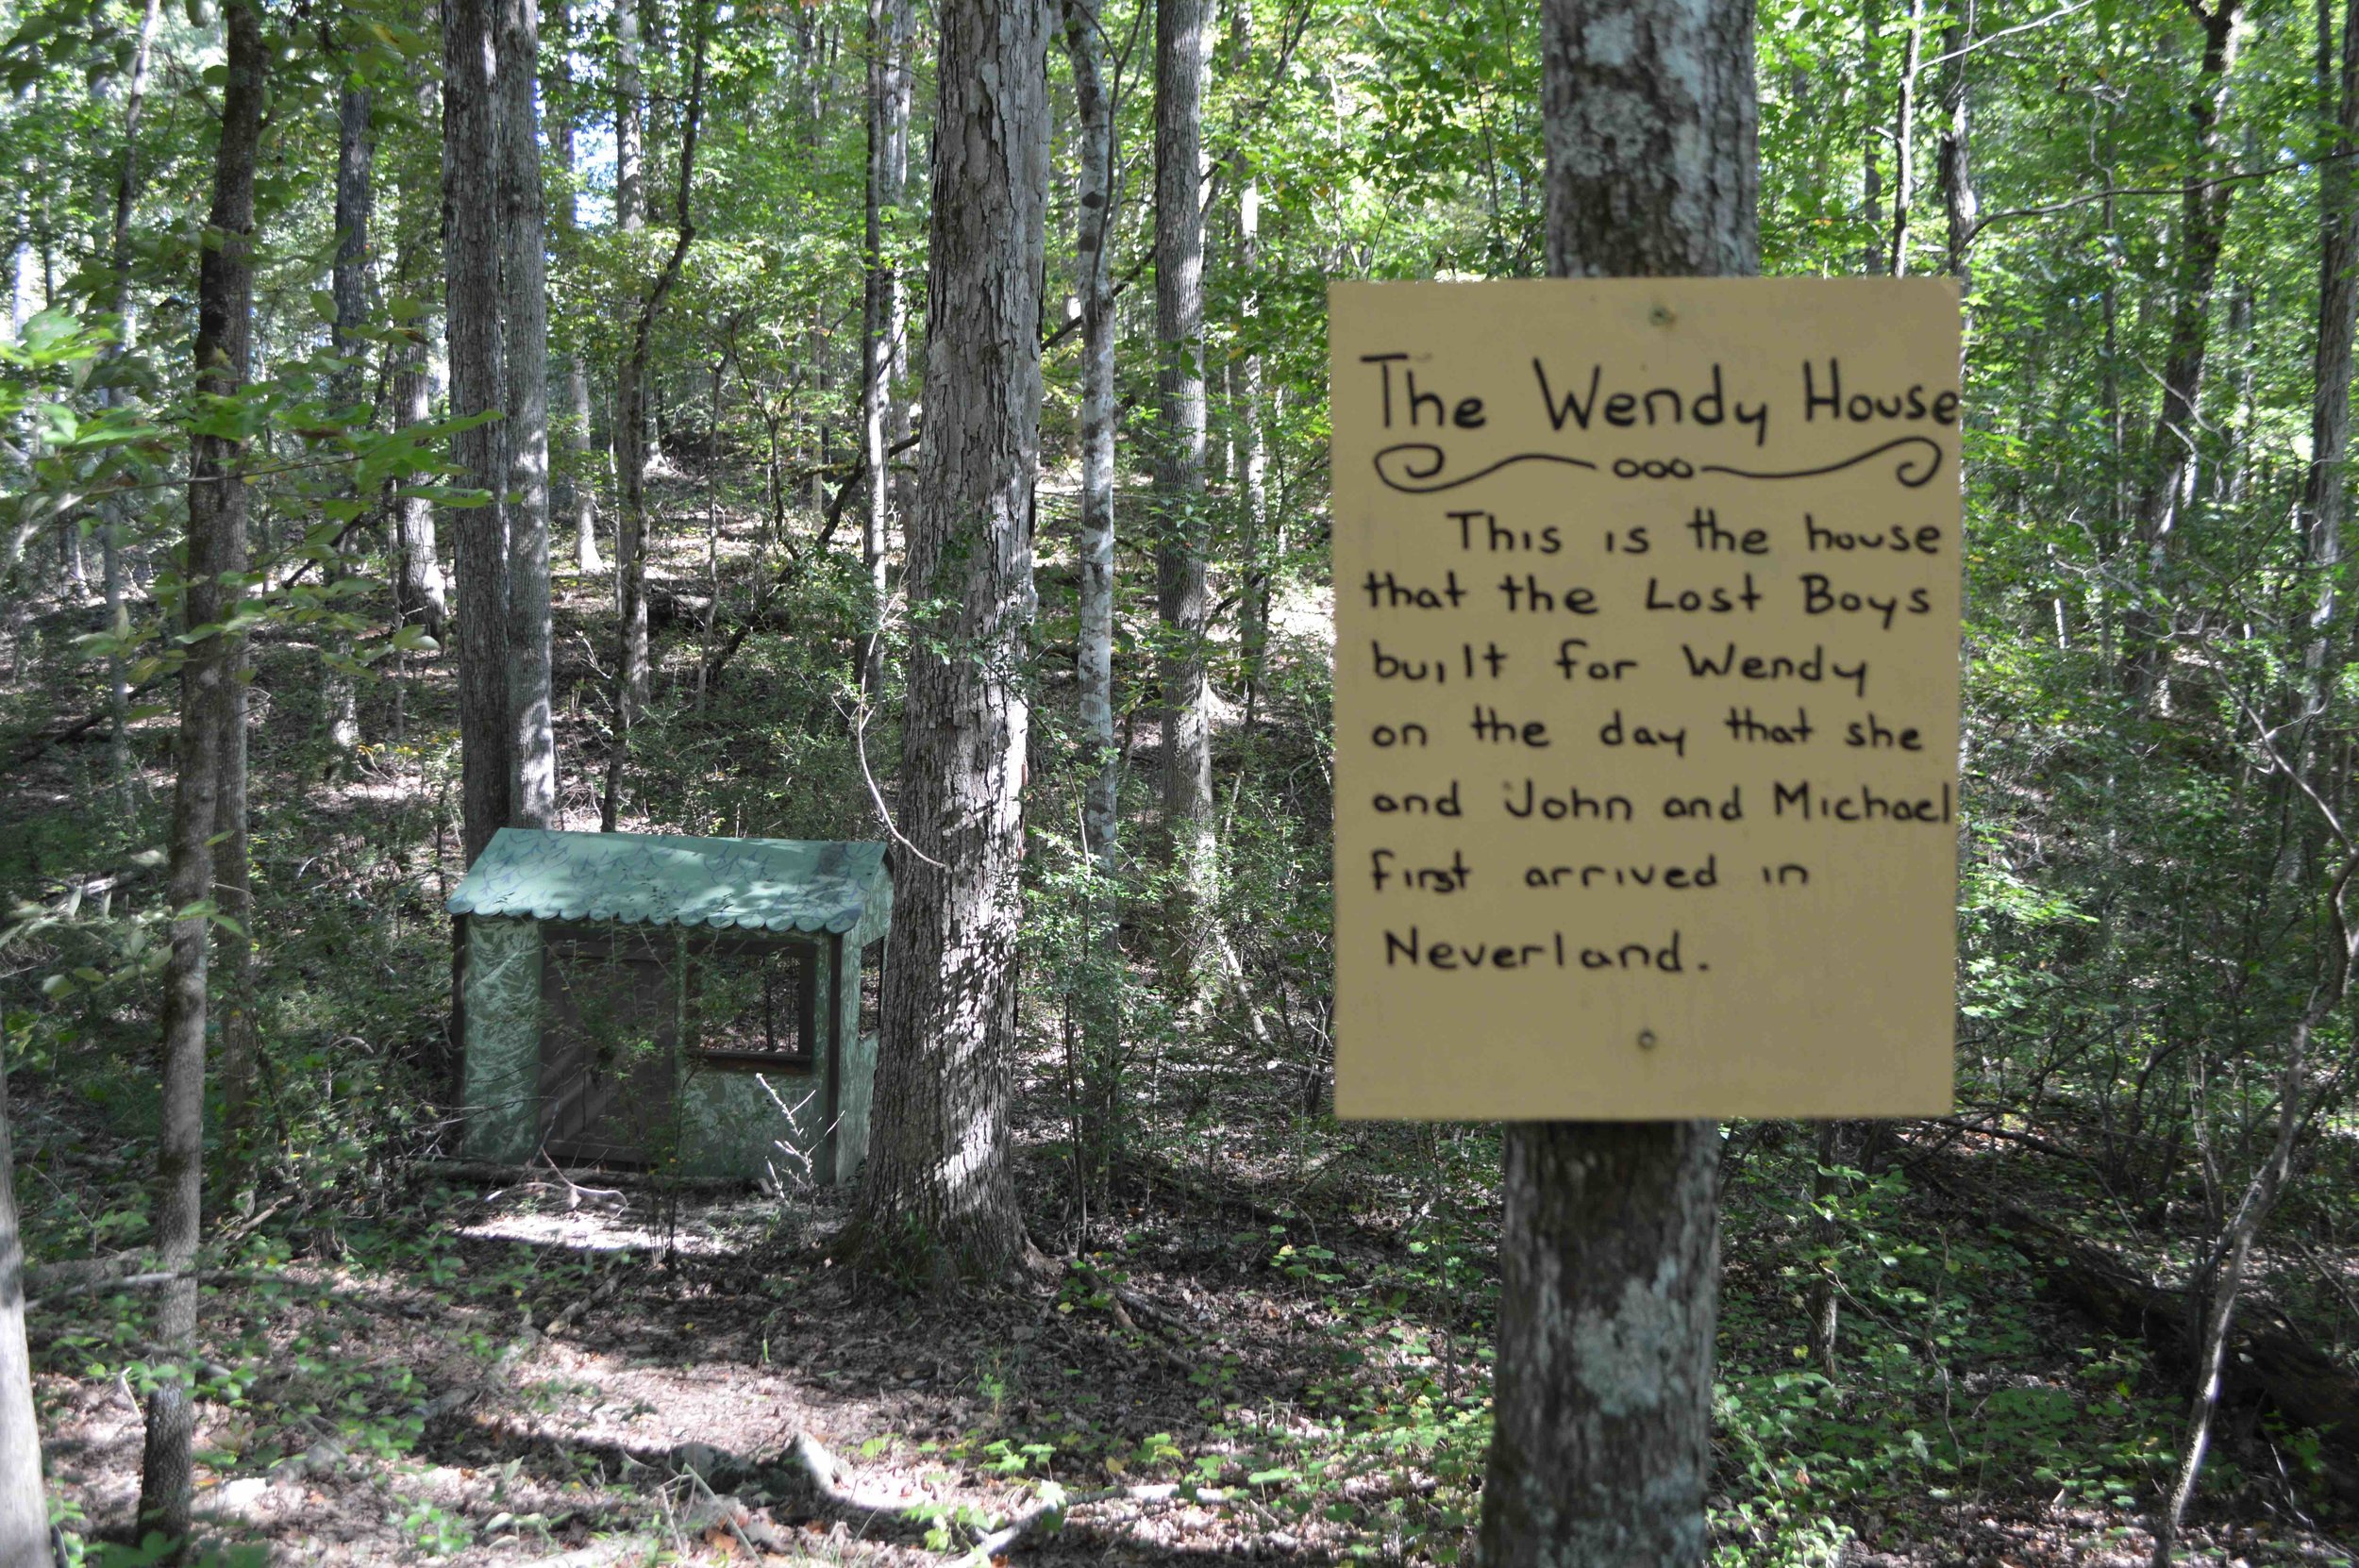 The Wendy House
This is the house
that the Lost Boys
built for Wendy
on the day that she
and John and Michael
first arrived in
Neverland.